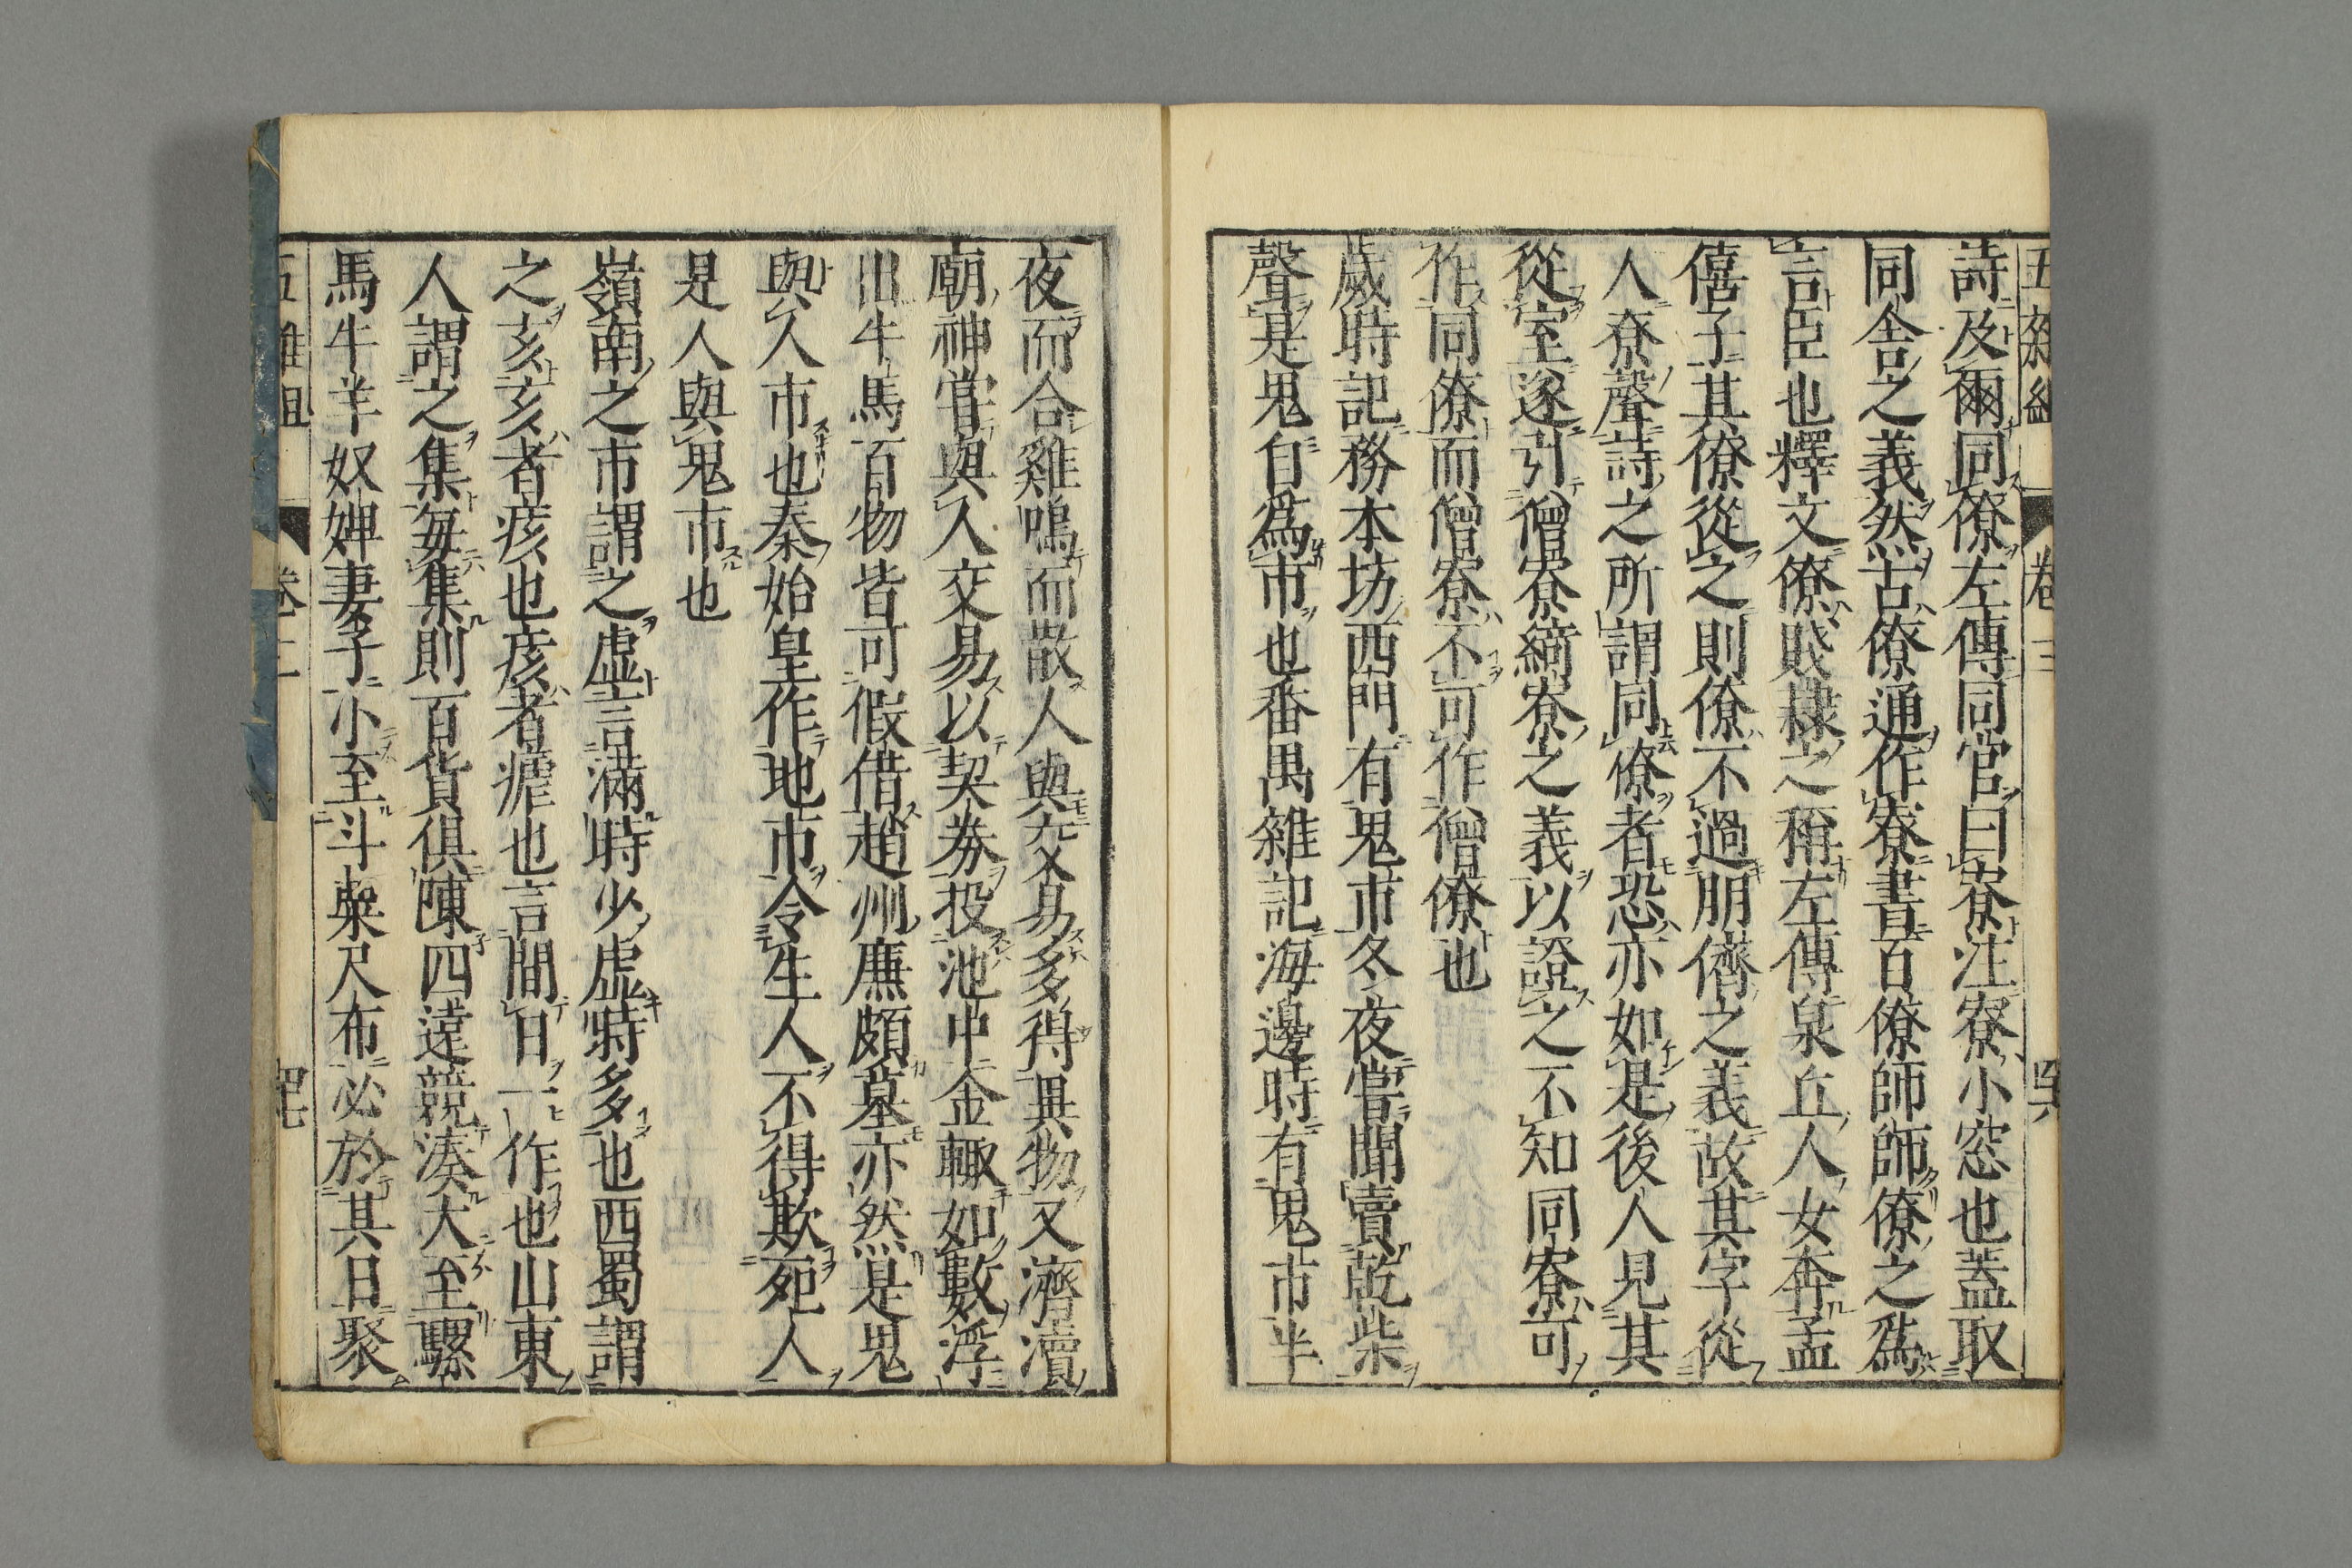 詩及爾同僚左傳同官曰寮注寮小窓也蓋取
同舎之義然古僚通作寮書百僚師師僚之爲
言臣也釋文僚賤棣之稱左傳泉丘人女奔孟
僖子其僚從之則僚不過朋儕之義故其字從
人尞聲詩之所謂同僚者恐亦如是後人見其
從室遂引僧寮綺寮之義以證之不知同寮可
作同僚而僧寮不可作僧僚也
歲時記務本坊西門有鬼市冬夜嘗聞賣乾柴
聲是鬼自爲市也番禺雜記海邊時有鬼市半
夜而合雞鳴而散人與交易多得異物又濟瀆
廟神嘗與人交易以契券投池中金輙如數浮
出牛馬百物皆可假借趙州廉頗墓亦然是鬼
與人市也秦始皇作地市令生人不得欺死人
是人與鬼市也
嶺南之市謂之虛言滿時少虛時多也西蜀謂
之亥亥者痎也痎者瘧也言間日一作也山東
人謂之集每集則百貨俱陳四遠競湊大至騾
馬牛羊奴婢妻子小至斗粟尺布必於其日聚
五雜俎
卷三